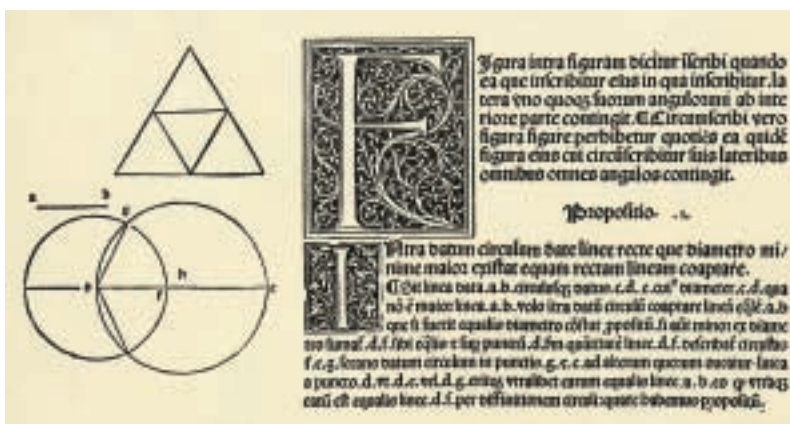 a b
g
d h
f c
Figura intra figuram dicitur iscribi quando
ea que inscribitur eius in qua inscribitur. la
tera vno quoqȝ suorum angulorum ab inte
riore parte contingit. ¶Circumscribi vero
figura figure perhibetur quotiēs ea quidē
figura eius cui circūscribitur suis lateribus
omnibus omnes angulos contingit.
Propositio .1.
INtra datum circulum date linee recte que diametro mi/
nime maior existat equam rectam lineam coaptare.
¶Sit linea data .a.b. circulusqȝ datus .c.d.e. diameter .c.d. qua
nō ē maior linea .a.b. volo itra datū circulū coaptare lineā .a.b
que si fuerit equalis diametro cōstat ppositū. si aūt minor ex diame
tro .d.f. sibi .d. linee .d.f. describaĩ circulus
f.e.g. secans datum circulum in punctis .g.e. ad alterum quorum ducatur linea
a puncto .d. vt .d.e. vel .d.g. vtralibet earum equalis linee .a.b. eo qȝ vtraqȝ
earū est equalis linee .d.f. per diffinitionem circuli: quare habemus propositū.